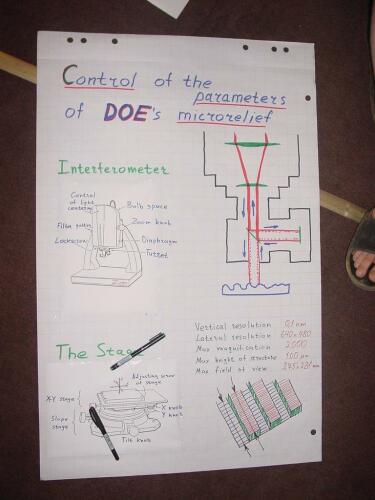 Control of the
parameters
of DOE's microrelief
Interferometer
Control
of light
Bulb space
Zoom knob
Lockscrew
Diaphragm
Turret
Vertical resolution 0,1 nm
Lateral resolution 640×480
Max magnification 2000
Max height of structure 100 μm
Max field of view
The Stage
Adjusting screw
of stage
X-Y stage
X knob
Y knob
Slope
stage
Tilt knob